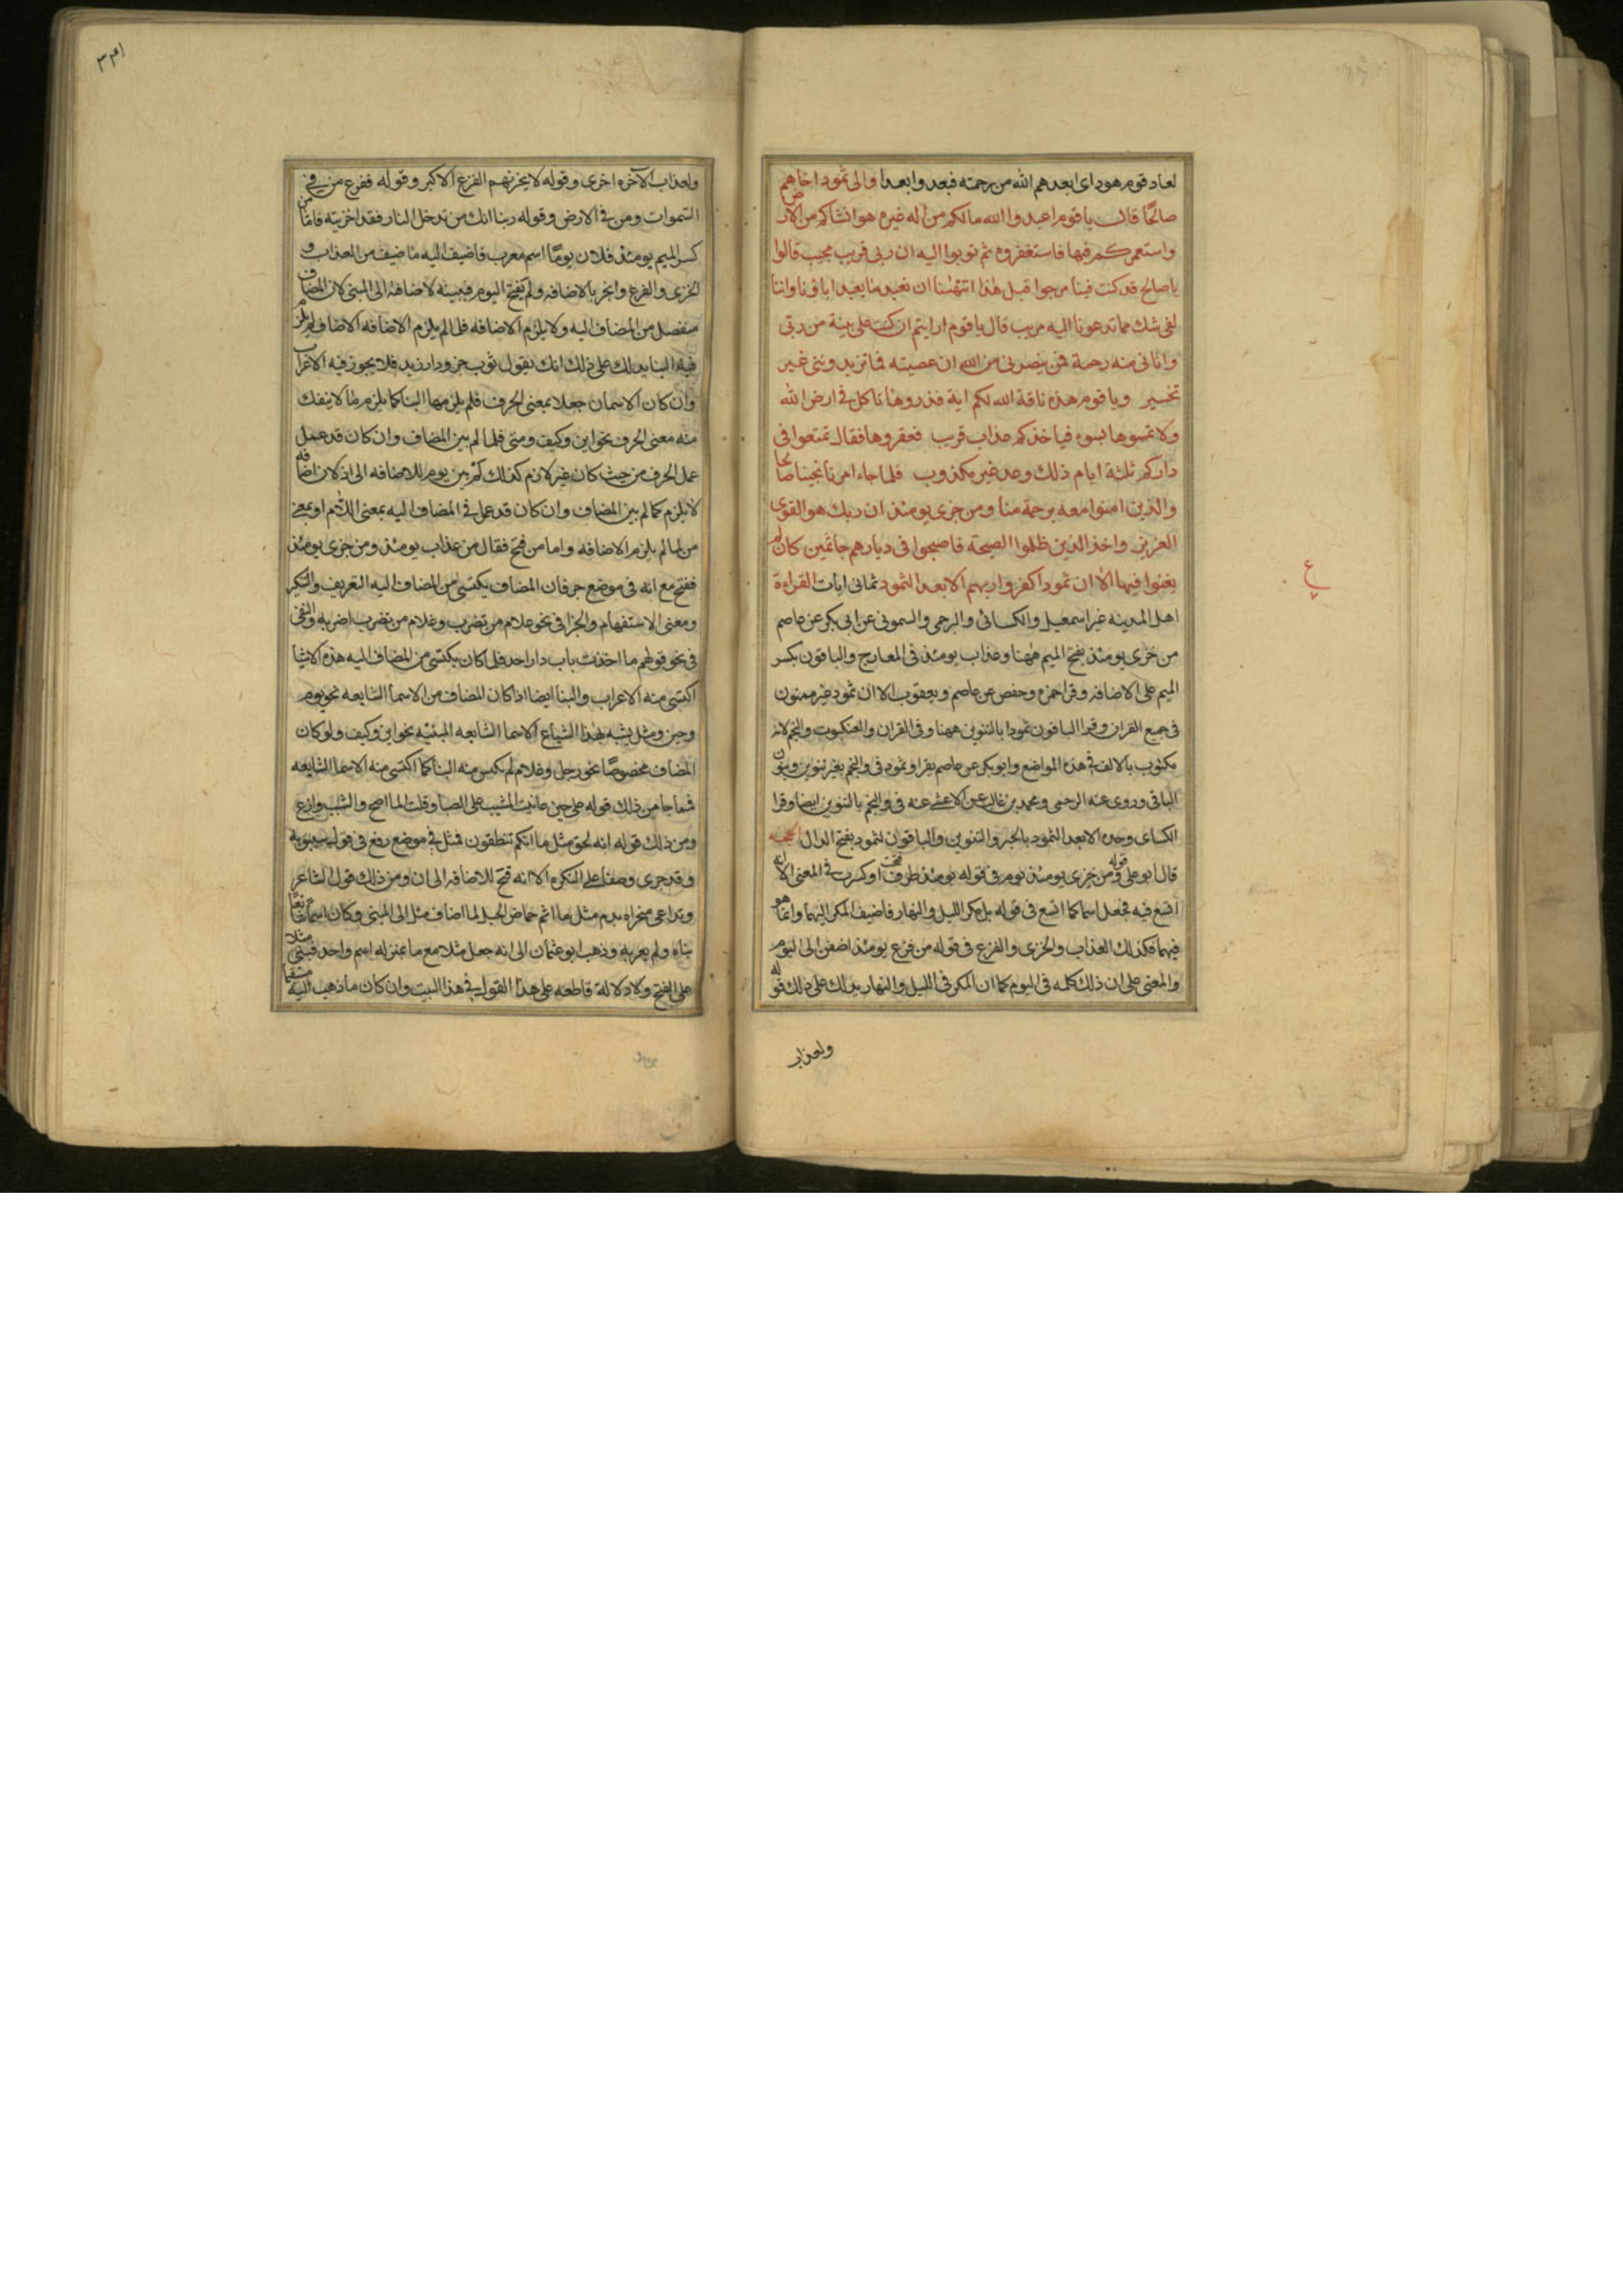 لعاد قوم هود اى ابعدهم الله من رحمته فبعدوا بعدا والى ثمود اخاهم
صالحا قال يا قوم اعبدوا الله مالكم من اله غيره هو انشاكم من الارض
واستعمركم فيها فاستغفروه ثم توبوا اليه ان ربى قريب مجيب قالوا
يا صالح قد كنت فينا مرجوا قبل هذا اتنهٰنا ان نعبد ما يعبد اباؤنا واننا
لفى شك مما تدعونا اليه مريب قال يا قوم ارايتم ان كنت على بينة من ربى
واتانى منه رحمة فمن ينصرنى من الله ان عصيته فما تزيدوننى غير
تخسير ويا قوم هذه ناقة الله لكم اية فذروها تاكل فى ارض الله
ولا تمسوها بسوء فياخذكم عذاب قريب فعقروها فقال تمتعوا فى
داركم ثلثة ايام ذلك وعد غير مكذوب فلما جاء امرنا نجينا صالحا
والذين امنوا معه برحمة منا ومن خزى يومئذ ان ربك هو القوى
العزيز واخذ الذين ظلموا الصيحة فاصبحوا فى ديارهم جاثمين كان لم
يغنوا فيها الا ان ثمودا كفروا ربهم الا بعدا لثمود ثمانى ايات القراءة
اهل المدينه غير اسمعيل والكسائى والبرجمى والسمونى عن ابى بكر عن عاصم
من خزى يومئذ بفتح الميم ههنا وعذاب يومئذ فى المعارج والباقون بكسر
الميم على الاضافه وقرا حمزه وحفص عن عاصم ويعقوب الا ان ثمود غير منون
فى جميع القران وقرا الباقون ثمودا بالتنوين ههنا وفى الفرقان والعنكبوت والنجم لانه
مكتوب بالالف فى هذه المواضع وابو بكر عن عاصم يقرا وثمود فى والنجم بغير تنوين وينون
الباقى وروى عنه البرجمى ومحمد بن غالب عن الاعشى عنه فى والنجم بالتنوين ايضا وقرا
الكساى وحده الا بعدا لثمود بالجر والتنوين والباقون لثمود بفتح الدال الحجه
قال ابو على قوله ومن خزى يومئذ يوم فى قوله يومئذ ظرف فتحت او كسرت فى المعنى الا انه
اتسع فيه فجعل اسما كما اتسع فى قوله بل مكر الليل والنهار فاضيف المكر اليهما وانما هو
فيهما فكذلك العذاب والخزى والفزع فى قوله من فزع يومئذ اضفن الى اليوم
والمعنى على ان ذلك كله فى اليوم كما ان المكر فى الليل والنهار يدلك على ذلك قوله
ولعذاب
ع
ولعذاب الآخره اخزى وقوله لا يحزنهم الفزع الاكبر وقوله ففزع من فى
السموات ومن فى الارض وقوله ربنا انك من تدخل النار فقد اخزيته فاما من
كسر الميم يومئذ فلان يوما اسم معرب فاضيف اليه ما ضيف من العذاب و
الخزى والفزع وانجر بالاضافه ولم يفتح اليوم فيبينه لاضافته الى المبنى لان المضاف
منفصل من المضاف اليه ولا يلزم الاضافه فلما لم يلزم الاضافه الاضاف لم يلزم
فيه البنا يدلك على ذلك انك تقول ثوب خز ودار زيد فلا يجوز فيه الا اعراب
وان كان الاسمان جعلا بمعنى الحرف فلم يلزمها البنا كما يلزم ما لا ينفك
منه معنى الحرف نحو اين وكيف ومتى فلما لم يبن المضاف وان كان قد عمل
عمل الحرف من حيث كان غير لازم كذلك لم يبن يوم للاضافه الى اذ لان اضافه
لا يلزم كما لم يبن المضاف وان كان قد عمل فى المضاف اليه بمعنى اللام او بمعنى
من لما لم يلزم الاضافه واما من فتح فقال من عذاب يومئذ ومن خزى يومئذ
ففتح مع انه فى موضع جر فان المضاف يكتسى من المضاف اليه التعريف والتنكير
ومعنى الاستفهام والجزا فى نحو غلام من تضرب وغلام من تضرب اضربه والنفى
فى نحو قولهم ما اخذت باب دار احد فلما كان يكتسى من المضاف اليه هذه الاشيا
اكتسى منه الاعراب والبنا ايضا اذا كان المضاف من الاسما الشايعه نحو يوم
وحين ومثل يشبه بهذا الشياع الاسما الشايعه المبنيه نحو اين وكيف ولو كان
المضاف مخصوصا نحو رجل وغلام لم يكتس منه البنا كما اكتسى منه الاسما الشايعه
فمما جا من ذلك قوله على حين عاتبت المشيب على الصبا وقلت الما اصح والشيب وازع
ومن ذلك قوله انه لحق مثل ما انكم تنطقون فمثل فى موضع رفع فى قول سيبويه
وقد جرى وصفا على النكره الا انه فتح للاضافه الى ان ومن ذلك قول الشاعر
وتداعى منخراه بدم مثل ما اثمر حماض الجبل لما اضاف مثل الى المبنى وكان
بناه ولم يعربه وذهب ابو عثمان الى انه جعل مثلا مع ما بمنزله اسم واحد فبنى مثلا
على الفتح ولا دلالة قاطعه على هذا القول فى هذا البيت وان كان ما ذهب اليه مستقيما